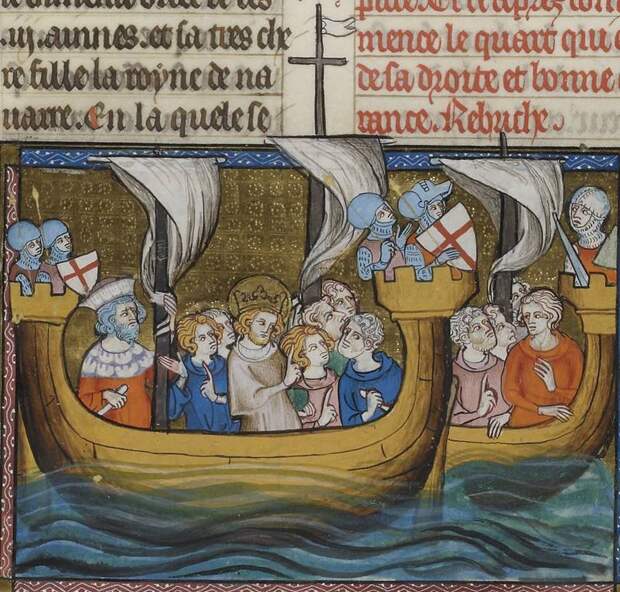 .iij. aunnes. et sa tres che
re fille la royne de na
uarre. En la quele se
mence le quart qui
de sa droite et bonne
rance. Rebriche.